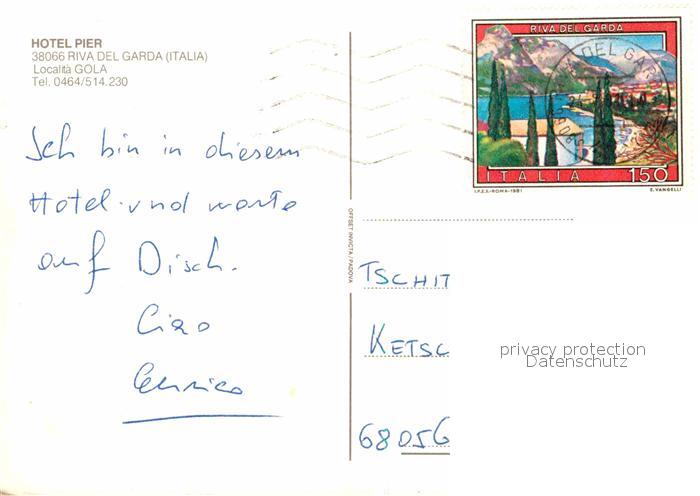 HOTEL PIER
38066 RIVA DEL GARDA (ITALIA)
Località GOLA
Tel. 0464/514.230
RIVA DEL GARDA
DEL GARDA
ITALIA 150
I.P.Z.S.-ROMA-1981 E. VANGELLI
Ich bin in diesem
Hotel und warte
auf Disch.
Ciao
Enrico
OFFSET INVICTA/PADOVA
TSCHIT
KETSC
68056
privacy protection
Datenschutz